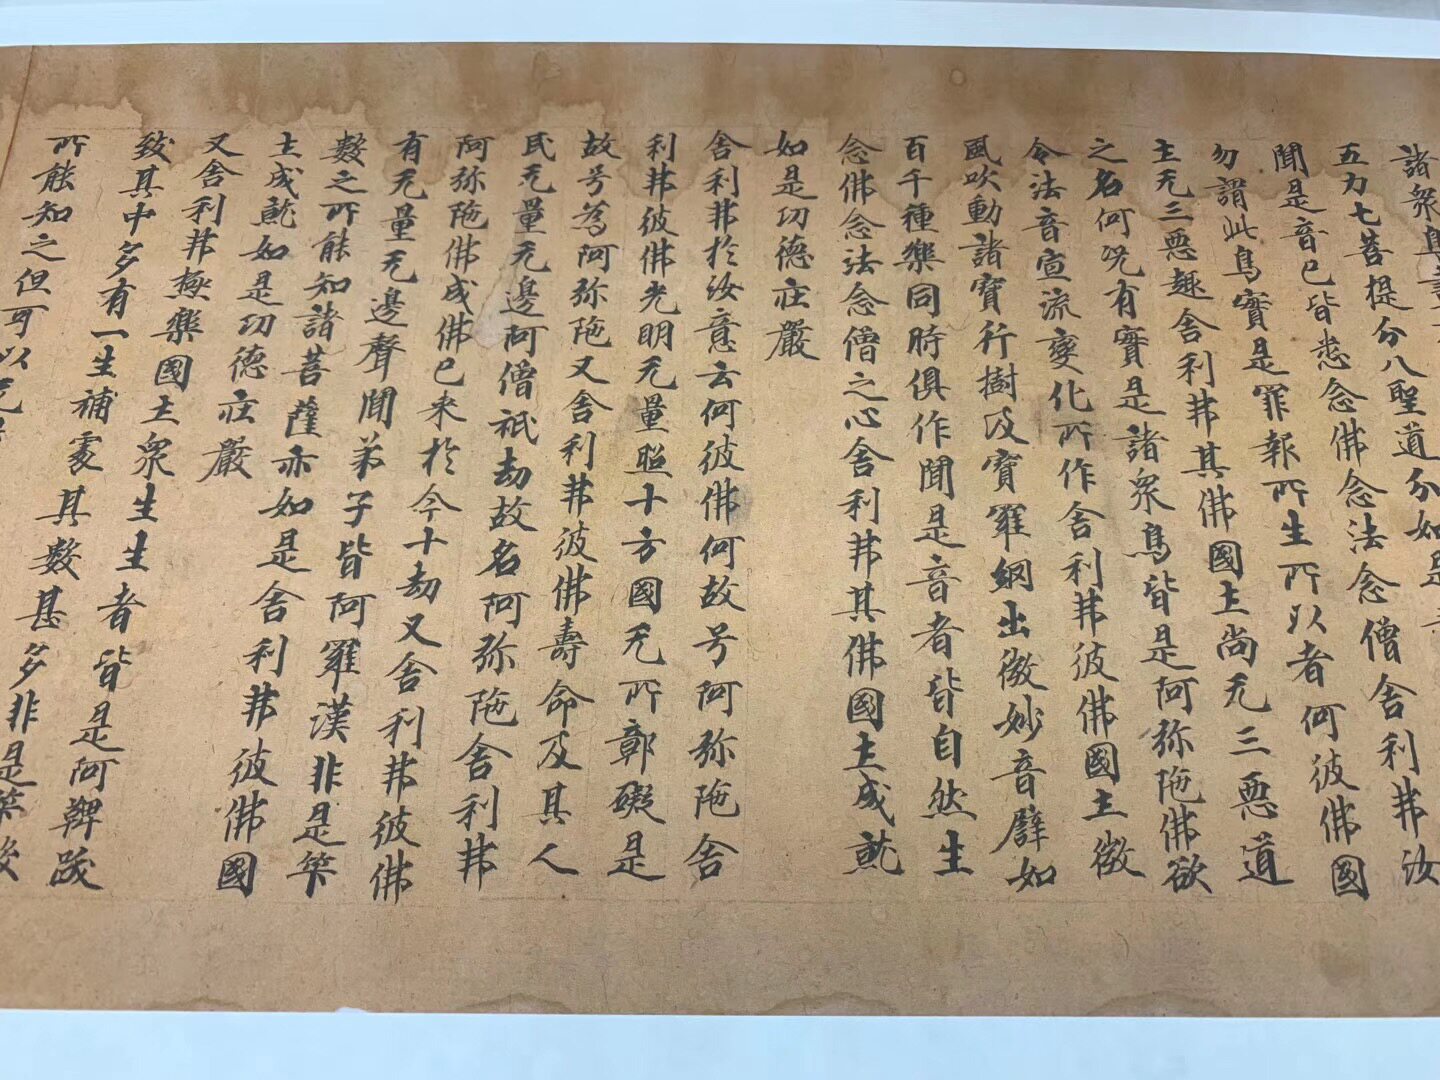 諸衆鳥
五力七菩提分八聖道分如是
聞是音已皆悉念佛念法念僧舍利弗汝
勿謂此鳥實是罪報所生所以者何彼佛國
土无三惡趣舍利弗其佛國土尚无三惡道
之名何況有實是諸衆鳥皆是阿弥陁佛欲
令法音宣流變化所作舍利弗彼佛國土微
風吹動諸寶行樹及寶羅網出微妙音譬如
百千種樂同時俱作聞是音者皆自然生
念佛念法念僧之心舍利弗其佛國土成就
如是功德莊嚴
舍利弗於汝意云何彼佛何故号阿弥陁舍
利弗彼佛光明无量照十方國无所鄣礙是
故号為阿弥陁又舍利弗彼佛壽命及其人
民无量无邊阿僧祇劫故名阿弥陁舍利弗
阿弥陁佛成佛已来於今十劫又舍利弗彼佛
有无量无邊聲聞弟子皆阿羅漢非是筭
數之所能知諸菩薩亦如是舍利弗彼佛國
土成就如是功德莊嚴
又舍利弗極樂國土衆生生者皆是阿鞞跋
致其中多有一生補處其數甚多非是筭數
所能知之但可以无